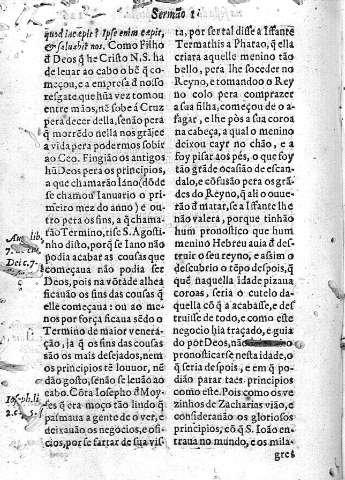 Sermão 1
quod incepit? Ipse enim cæpit,
& saluabit nos. Como Filho
d Deos q̃ he Christo N.S. ha
de leuar ao cabo o bẽ q̃ co-
meçou, e a empresa d nosso
resgate que hũa vez tomou
entre mãos, nẽ sobe á Cruz
pera decer della, senão pera
q̃ morrẽdo nella nos grãjee
a vida pera podermos sobir
ao Ceo. Fingião os antigos
hũ Deos pera os principios,
a que chamarão Iano (dõde
se chamou Ianuario o pri-
meiro mez do anno) e ou-
tro pera os fins, a q̃ chama-
rão Termino, e disse S. Agosti-
nho disto, porq̃ se Iano não
podia acabar as cousas que
começaua não podia ser
Deos, pois na võtade alhea
ficauão os fins das cousas q̃
elle começaua: ou ao me-
nos por força ficaua sẽdo o
Termino de maior venera-
ção, ja q̃ os fins das cousas
são os mais desejados, nem
os principios tẽ louuor, nẽ
dão gosto, senão se leuão ao
cabo. Cõta Iosepho d Moy-
ses q̃ era moço tão lindo q̃
pasmaua a gente de o ver, e
deixauão os negocios, e ofi-
cios, por se fartar de sua vis-
Aug. lib.
7.
Dei c. 7.
Ioseph. li.
2. c. 5.
ta, por ser tal disse a Iffante
Termathis a Pharao, q̃ ella
criara aquelle menino tão
bello, pera lhe soceder no
Reyno, e tomandoo o Rey
no colo pera comprazer
a sua filha, começou de o a-
fagar, e lhe pòs a sua coroa
na cabeça, a qual o menino
deixou cayr no chão, e a
foy pisar aos pès, o que foy
tão grãde ocasião de escan-
dalo, e cõfusão pera os grã-
des do Reyno, q̃ ali o ouue-
rão d matar, se a Iffante lhe
não valera, porque tinhão
hum pronostico que hum
menino Hebreu auia d des-
truir o seu reyno, e assim o
descubrio o tẽpo despois, q̃
quẽ naquella idade pizaua
coroas, seria o cutelo da-
quella cõ q̃ a acabasse, e des-
truisse de todo, e como este
negocio hia traçado, e guia
do por Deos, não
pronosticarse nesta idade, o
q̃ seria despois, e em q̃ po-
dião parar taes principios
como este. Pois como os ve-
zinhos de Zacharias vião, e
considerauão os gloriosos
principios, cõ q̃ S. Ioão en-
traua no mundo, e os mila-
gres